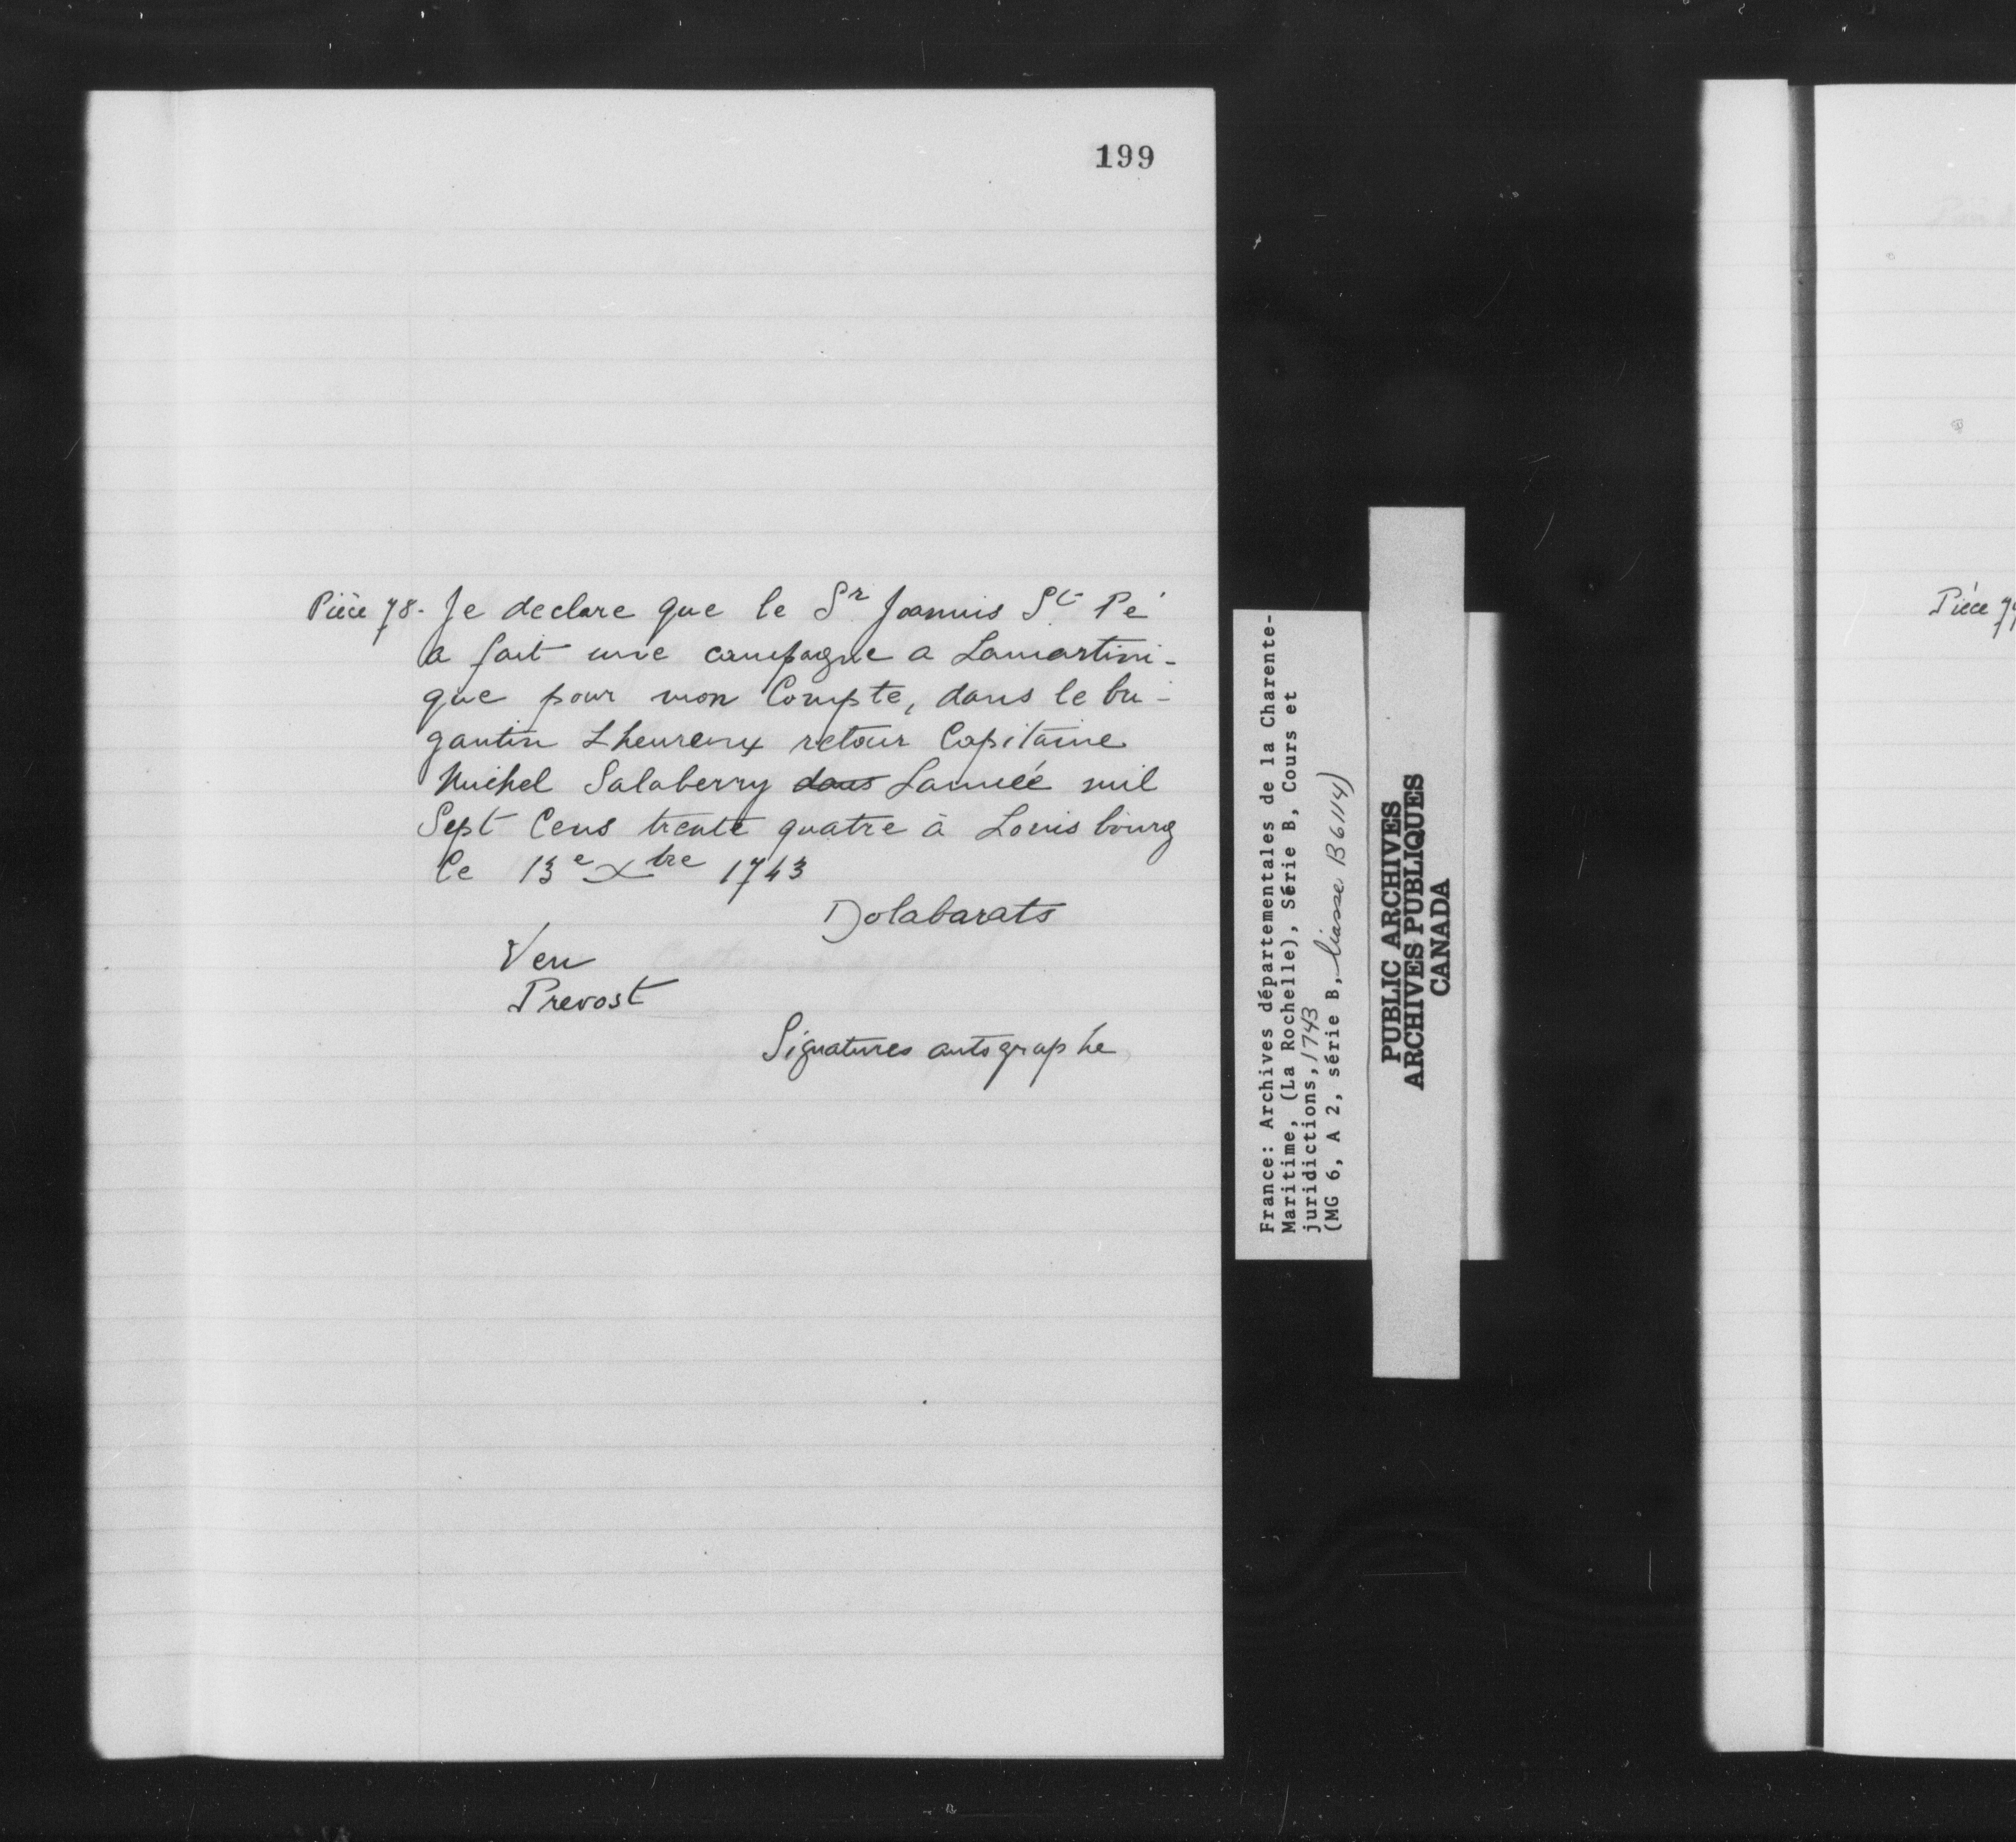 199
Pièce 78. Je declare que le Sr Joannis St Pé
a fait une campagne a Lamartini-
que pour mon Compte, dans le bri-
gantin Lheureux retour Capitaine
Michel Salaberry dans Lanneé mil
Sept Cens trente quatre à Louisbourg
Ce 13e Xbre 1743
Dolabarats
Veu
Prevost
Signatures autographe
France: Archives départementales de la Charente-
Maritime, (La Rochelle), Série B, Cours et
juridictions, 1743
(MG 6, A 2, série B, liasse B6114)
PUBLIC ARCHIVES
ARCHIVES PUBLIQUES
CANADA
Pièce